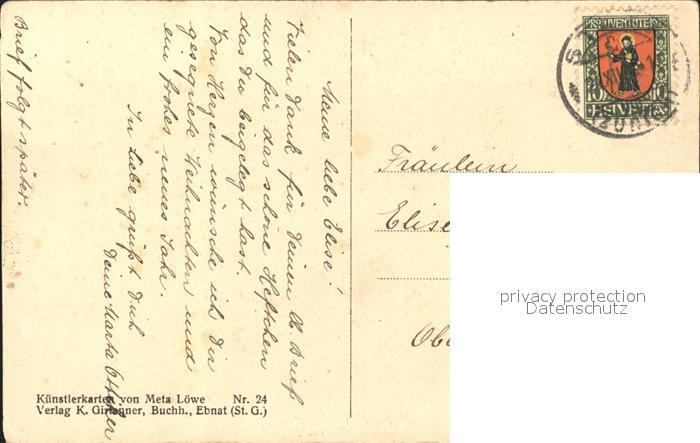 Meine liebe Elise!
Vielen Dank für Deinen lb Brief
und für das schöne Heftchen
das Du beigelegt hast.
Von Herzen wünsche ich Dir
gesegnete Weihnachten und
ein frohes neues Jahr.
In Liebe grüßt Dich
Deine Marta
Brief folgt später.
Künstlerkarten von Meta Löwe Nr. 24
Verlag K. Girtanner, Buchh., Ebnat (St. G.)
PRO JUVENTUTE 1923
10 10
HELVETIA
Fräulein
Elise
Obe
privacy protection
Datenschutz